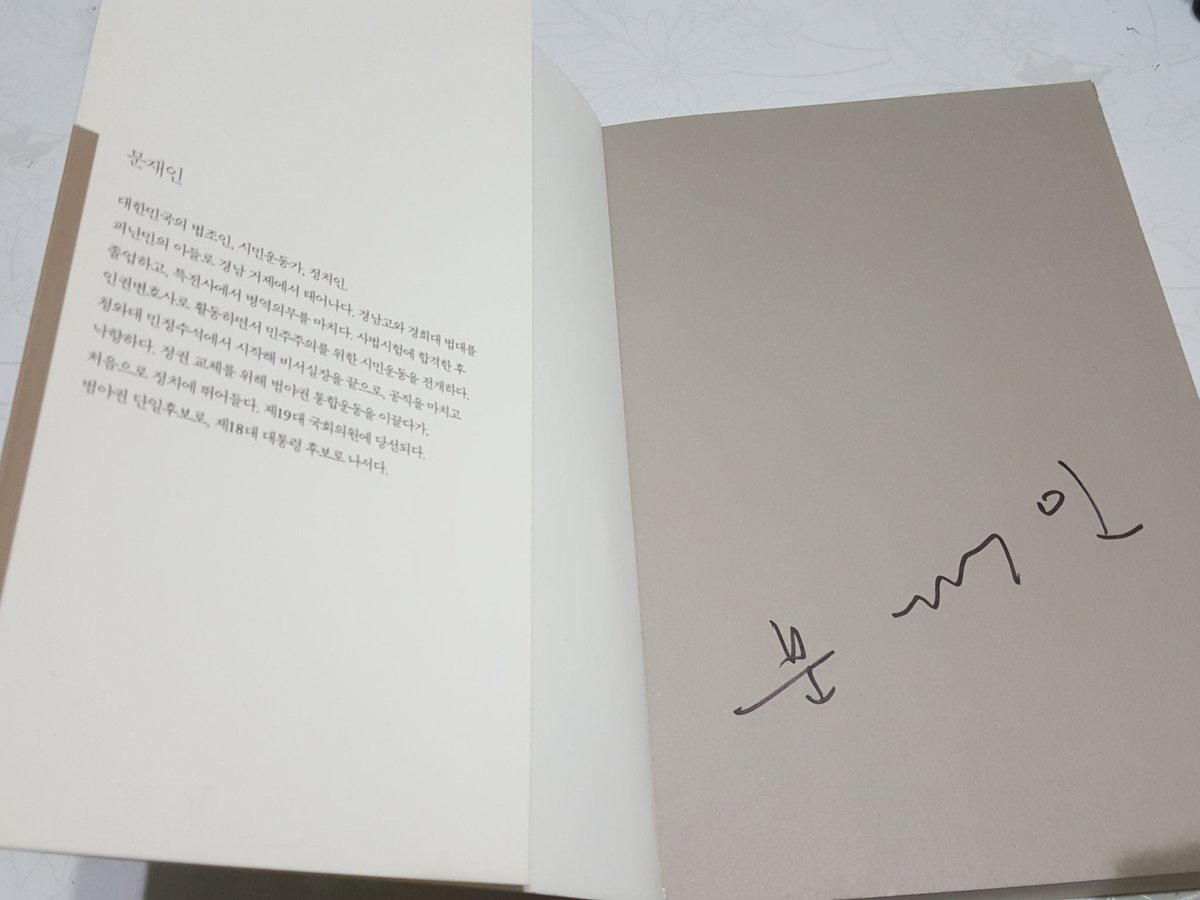 문재인
대한민국의 법조인, 시민운동가, 정치인.
피난민의 아들로 경남 거제에서 태어나다. 경남고와 경희대 법대를
졸업하고, 특전사에서 병역의무를 마치다. 사법시험에 합격한 후
인권변호사로 활동하면서 민주주의를 위한 시민운동을 전개하다.
청와대 민정수석에서 시작해 비서실장을 끝으로, 공직을 마치고
낙향하다. 정권 교체를 위해 범야권 통합운동을 이끌다가,
처음으로 정치에 뛰어들다. 제19대 국회의원에 당선되다.
범야권 단일후보로, 제18대 대통령 후보로 나서다.
문재인